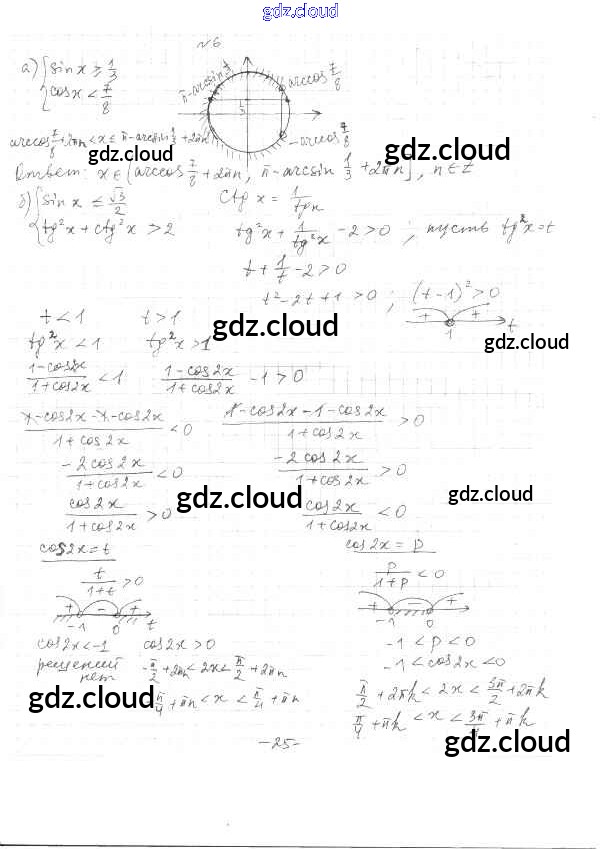 gdz.cloud
№6
а) { sin x ≥ 1/3
cos x < 7/8
π-arcsin 1/3
arccos 7/8
1/3
-arccos 7/8
arccos 7/8 + 2πn < x ≤ π - arcsin 1/3 + 2πn
gdz.cloud
gdz.cloud
Ответ: x ∈ (arccos 7/8 + 2πn, π - arcsin 1/3 + 2πn], n ∈ Z
б) { sin x ≤ √3/2
ctg x = 1/tg x
tg²x + ctg²x > 2
tg²x + 1/tg²x - 2 > 0 ; пусть tg²x = t
t + 1/t - 2 > 0
t² - 2t + 1 > 0 ; (t-1)² > 0
+ + 1 t
t < 1 t > 1
gdz.cloud
gdz.cloud
tg²x < 1 tg²x > 1
1-cos2x/1+cos2x < 1 1-cos2x/1+cos2x - 1 > 0
1-cos2x-1-cos2x/1+cos2x < 0 1-cos2x-1-cos2x/1+cos2x > 0
-2cos2x/1+cos2x < 0 -2cos2x/1+cos2x > 0
gdz.cloud
gdz.cloud
cos2x/1+cos2x > 0 cos2x/1+cos2x < 0
cos2x = t cos2x = p
t/1+t > 0 p/1+p < 0
+ - + -1 0 t
+ - + -1 0
cos2x < -1 cos2x > 0 -1 < p < 0
решений нет -π/2 + 2πn < 2x < π/2 + 2πn -1 < cos2x < 0
gdz.cloud
-π/4 + πn < x < π/4 + πn π/2 + 2πk < 2x < 3π/2 + 2πk
π/4 + πk < x < 3π/4 + πk
gdz.cloud
-25-